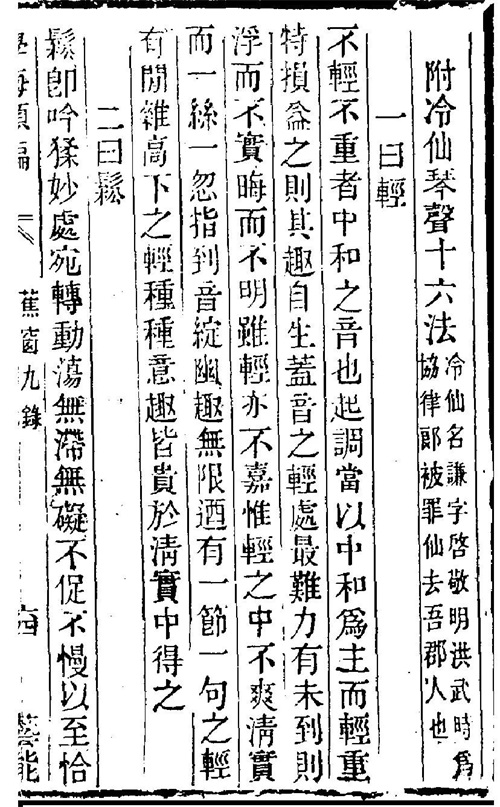 附冷仙琴聲十六法
冷仙名謙字啓敬明洪武時爲
協律郎被罪仙去吾郡人也
一曰輕
不輕不重者中和之音也起調當以中和爲主而輕重
特損益之則其趣自生蓋音之輕處最難力有未到則
浮而不實晦而不明雖輕亦不嘉惟輕之中不爽淸實
而一絲一忽指到音綻幽趣無限迺有一節一句之輕
有閒雜高下之輕種種意趣皆貴於淸實中得之
二曰鬆
鬆卽吟猱妙處宛轉動蕩無滯無礙不促不慢以至恰
學海類編
蕉窗九錄
藝能